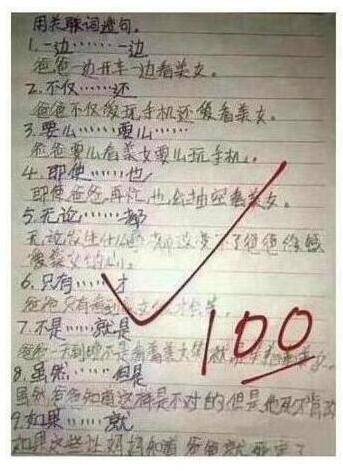 用关联词造句。
1.一边……一边
爸爸一边开车一边看美女。
2.不仅……还
爸爸不仅爱玩手机还爱看美女。
3.要么……要么……
爸爸要么看美女要么玩手机。
4.即使……也
即使爸爸再忙,也会抽空看美女。
5.无论……都
无论发生什么 都改变不了爸爸
爱美女的心。
6.只有……才
爸爸只有看到美女 才
7.不是……就是
爸爸一天到晚不是看着美女 就
8.虽然……但是
虽然爸爸知道这样是不对的但是他死不肯改
9.如果……就
如果这些让妈妈知道 爸爸就死定了
100